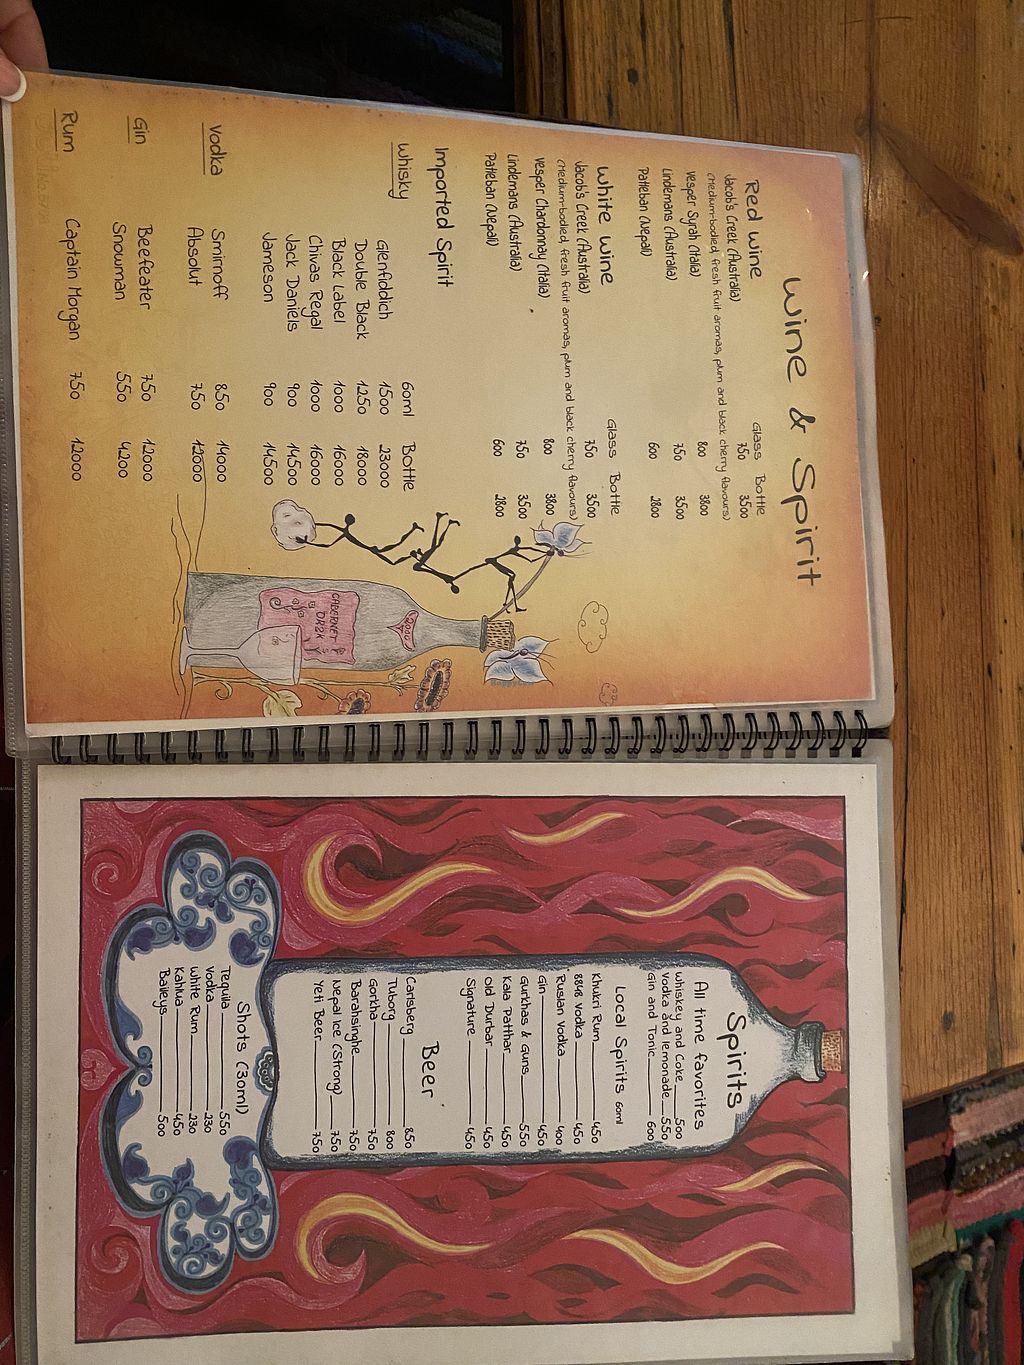 Wine & Spirit
Glass Bottle
Red Wine
Jacob's Creek (Australia) 750 3500
(Medium-bodied, fresh fruit aromas, plum and black cherry flavours)
Vesper Syrah (Italia) 800 3800
Lindemans (Australia) 750 3500
Patleban (Nepali) 600 2800
Glass Bottle
White Wine
Jacob's Creek (Australia) 750 3500
(Medium-bodied, fresh fruit aromas, plum and black cherry flavours)
Vesper Chardonnay (Italia) 800 3800
Lindemans (Australia) 750 3500
Patleban (Nepali) 600 2800
Imported Spirit
Whisky 60ml Bottle
Glenfiddich 1500 23000
Double Black 1250 18000
Black Label 1000 16000
Chivas Regal 1000 16000
Jack Daniels 900 14500
Jameson 900 14500
Vodka Smirnoff 850 14000
Absolut 750 12000
Gin Beefeater 750 12000
Snowman 550 4200
Rum Captain Morgan 750 12000
2020
CABERNET
Spirits
All time favorites
Whiskey and Coke 500
Vodka and lemonade 550
Gin and Tonic 600
Local Spirits 60ml
Khukri Rum 450
8848 Vodka 450
Ruslan Vodka 400
Gin 450
Gurkhas & Guns 550
Kala Patthar 450
Old Durbar 450
Signature 450
Beer
Carlsberg 850
Tuborg 800
Gorkha 750
Barahsinghe 750
Nepal Ice (Strong) 750
Yeti Beer 750
Shots (30ml)
Tequila 550
Vodka 230
White Rum 230
Kahlua 450
Baileys 500